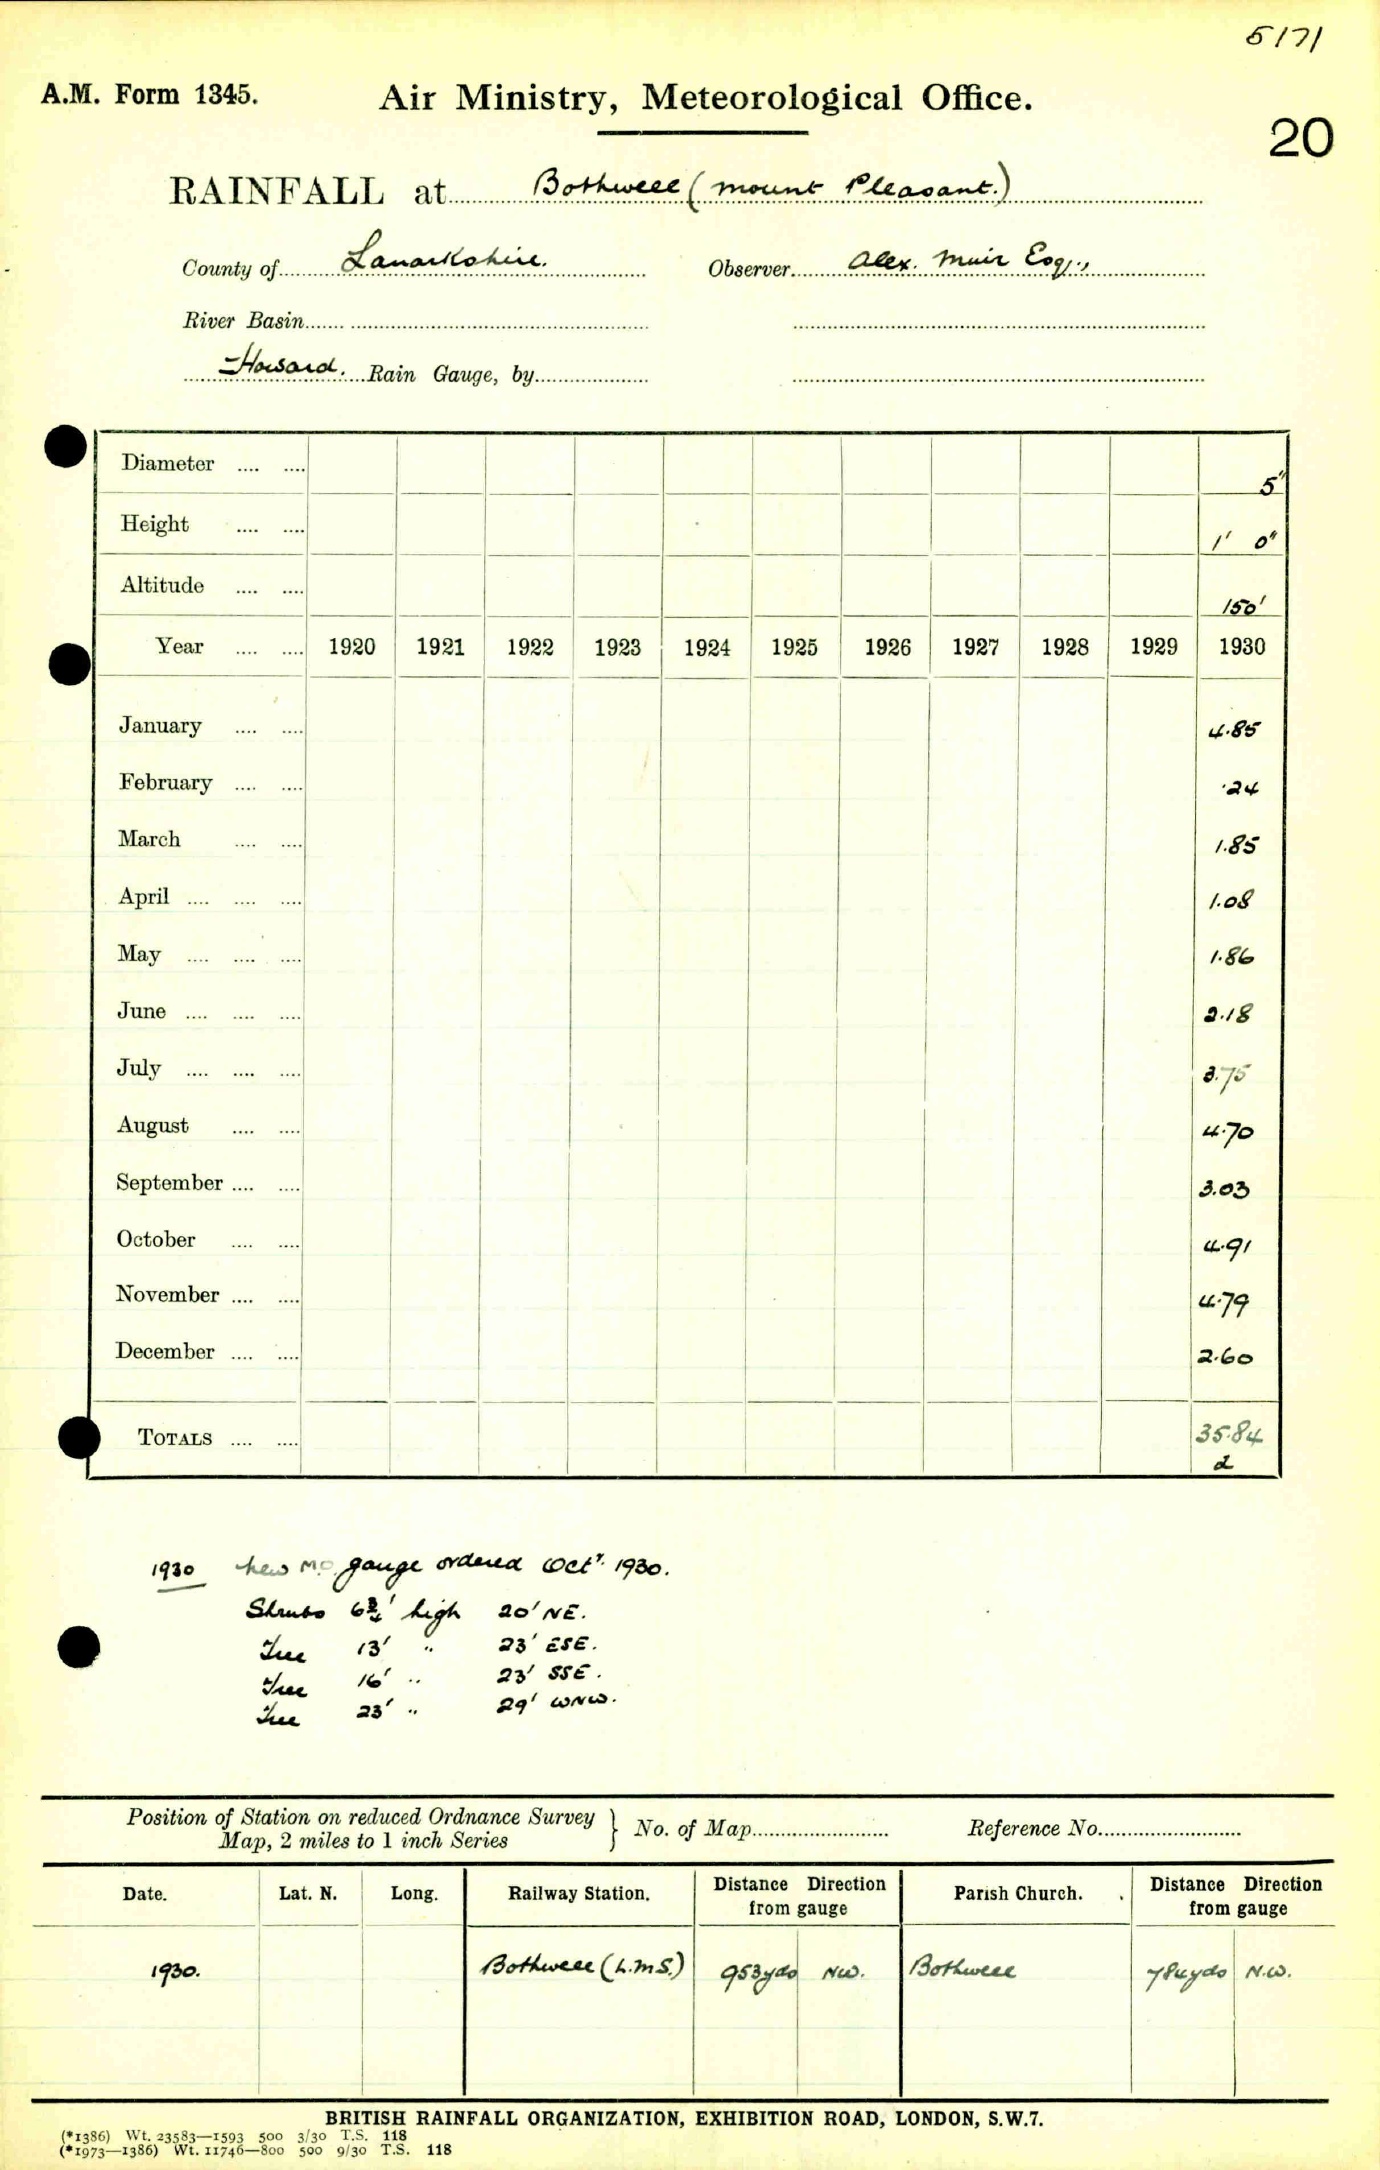 5171
A.M. Form 1345. Air Ministry, Meteorological Office.
20
RAINFALL at Bothwell (Mount Pleasant.)
County of Lanarkshire. Observer Alex. Muir Esq.,
River Basin
Howard. Rain Gauge, by
Diameter .... .... 5"
Height .... .... 1' 0"
Altitude .... .... 150'
Year .... .... 1920 1921 1922 1923 1924 1925 1926 1927 1928 1929 1930
January .... .... 4.85
February .... .... .24
March .... .... 1.85
April .... .... .... 1.08
May .... .... .... 1.86
June .... .... .... 2.18
July .... .... .... 3.75
August .... .... 4.70
September .... .... 3.03
October .... .... 4.91
November .... .... 4.79
December .... .... 2.60
TOTALS .... .... 35.84
d
1930 New M.O. gauge ordered Octr. 1930.
Shrubs 6¾' high 20' NE.
Tree 13' " 23' ESE.
Tree 16' " 23' SSE.
Tree 23' " 29' WNW.
Position of Station on reduced Ordnance Survey
Map, 2 miles to 1 inch Series } No. of Map Reference No.
Date. Lat. N. Long. Railway Station. Distance Direction from gauge Parish Church. Distance Direction from gauge
1930. Bothwell (L.M.S.) 953yds NW. Bothwell 784yds N.W.
BRITISH RAINFALL ORGANIZATION, EXHIBITION ROAD, LONDON, S.W.7.
(*1386) Wt. 23583—1593 500 3/30 T.S. 118
(*1973—1386) Wt. 11746—800 500 9/30 T.S. 118